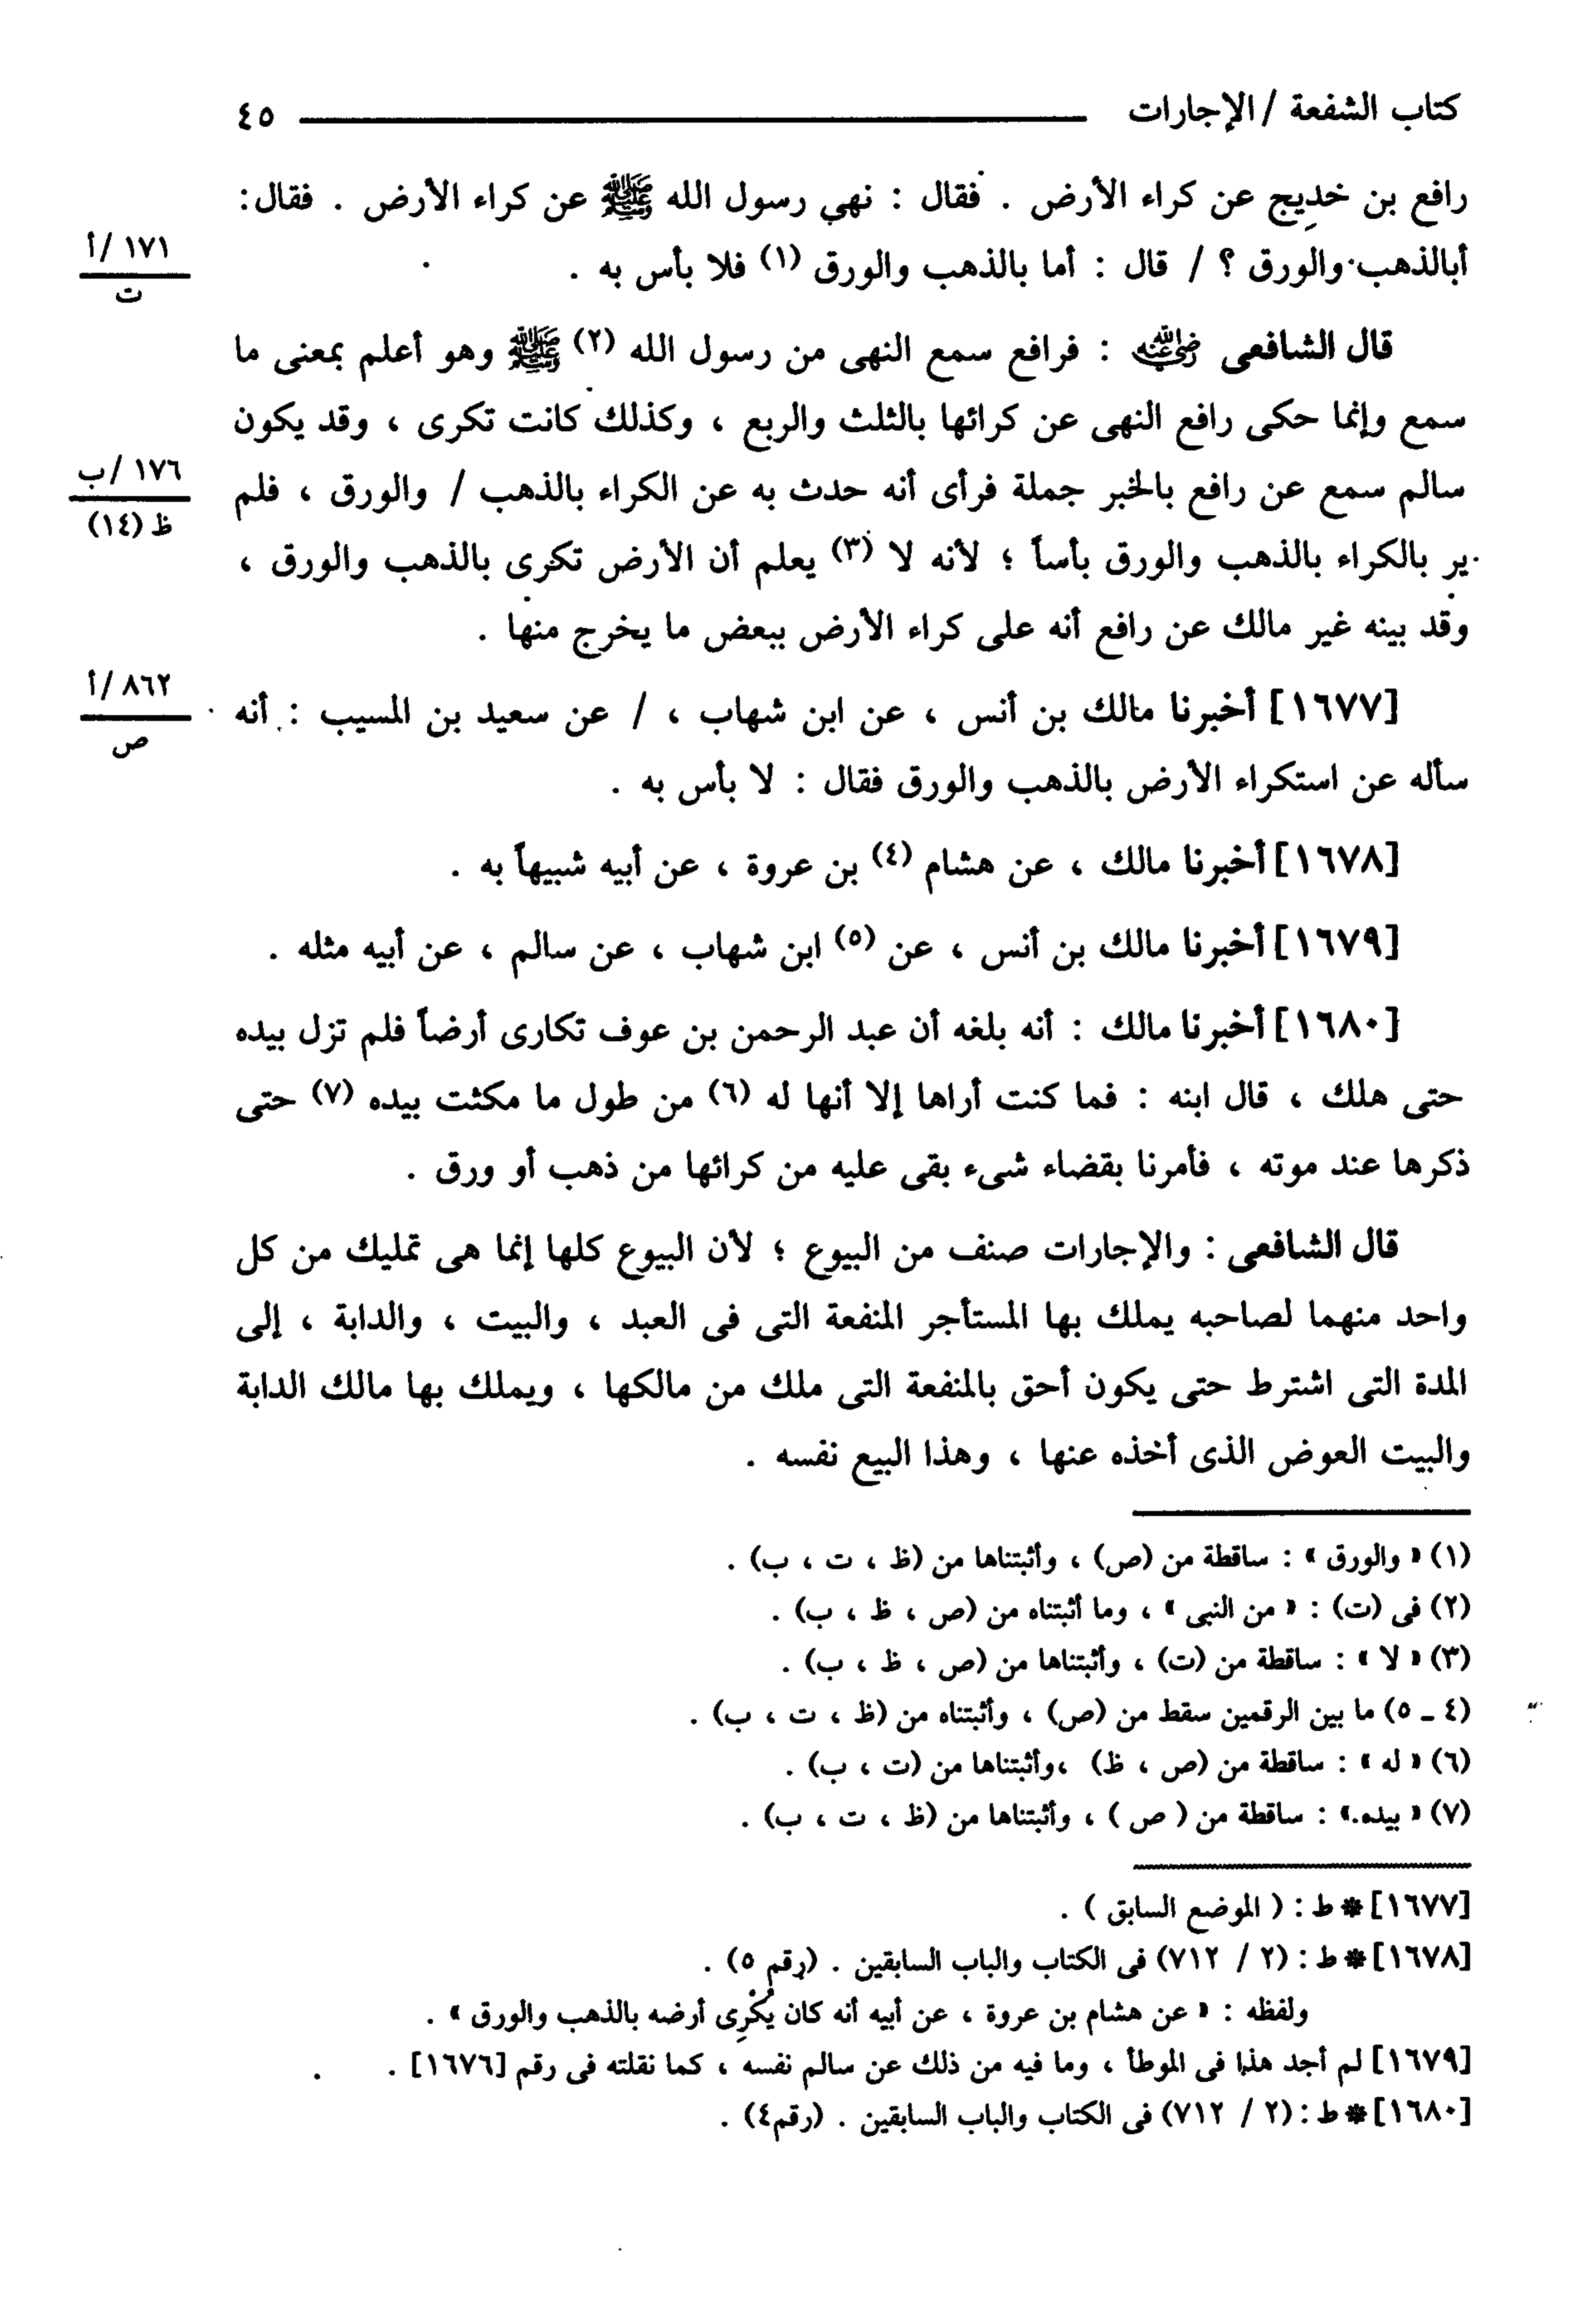 كتاب الشفعة / الإجارات ــــــــــــــــــــ ٤٥
رافع بن خديج عن كراء الأرض . فقال : نهي رسول الله ﷺ عن كراء الأرض . فقال:
أبالذهب والورق ؟ / قال : أما بالذهب والورق (١) فلا بأس به .
١٧١ /أ
ت
قال الشافعى رضي الله عنه : فرافع سمع النهى من رسول الله (٢) ﷺ وهو أعلم بمعنى ما
سمع وإنما حكى رافع النهى عن كرائها بالثلث والربع ، وكذلك كانت تكرى ، وقد يكون
سالم سمع عن رافع بالخبر جملة فرأى أنه حدث به عن الكراء بالذهب / والورق ، فلم
١٧٦ /ب
ظ (١٤)
ير بالكراء بالذهب والورق بأساً ؛ لأنه لا (٣) يعلم أن الأرض تكرى بالذهب والورق ،
وقد بينه غير مالك عن رافع أنه على كراء الأرض ببعض ما يخرج منها .
[١٦٧٧] أخبرنا مالك بن أنس ، عن ابن شهاب ، / عن سعيد بن المسيب : أنه
٨٦٢ /أ
ص
سأله عن استكراء الأرض بالذهب والورق فقال : لا بأس به .
[١٦٧٨] أخبرنا مالك ، عن هشام (٤) بن عروة ، عن أبيه شبيهاً به .
[١٦٧٩] أخبرنا مالك بن أنس ، عن (٥) ابن شهاب ، عن سالم ، عن أبيه مثله .
[١٦٨٠] أخبرنا مالك : أنه بلغه أن عبد الرحمن بن عوف تكارى أرضاً فلم تزل بيده
حتى هلك ، قال ابنه : فما كنت أراها إلا أنها له (٦) من طول ما مكثت بيده (٧) حتى
ذكرها عند موته ، فأمرنا بقضاء شىء بقى عليه من كرائها من ذهب أو ورق .
قال الشافعى : والإجارات صنف من البيوع ؛ لأن البيوع كلها إنما هى تمليك من كل
واحد منهما لصاحبه يملك بها المستأجر المنفعة التى فى العبد ، والبيت ، والدابة ، إلى
المدة التى اشترط حتى يكون أحق بالمنفعة التى ملك من مالكها ، ويملك بها مالك الدابة
والبيت العوض الذى أخذه عنها ، وهذا البيع نفسه .
(١) « والورق » : ساقطة من (ص) ، وأثبتناها من (ظ ، ت ، ب) .
(٢) فى (ت) : « من النبى » ، وما أثبتناه من (ص ، ظ ، ب) .
(٣) « لا » : ساقطة من (ت) ، وأثبتناها من (ص ، ظ ، ب) .
(٤ ـ ٥) ما بين الرقمين سقط من (ص) ، وأثبتناه من (ظ ، ت ، ب) .
(٦) « له » : ساقطة من (ص ، ظ) ،وأثبتناها من (ت ، ب) .
(٧) « بيده » : ساقطة من ( ص ) ، وأثبتناها من (ظ ، ت ، ب) .
[١٦٧٧] * ط : ( الموضع السابق ) .
[١٦٧٨] * ط : (٢ / ٧١٢) فى الكتاب والباب السابقين . (رقم ٥) .
ولفظه : « عن هشام بن عروة ، عن أبيه أنه كان يُكْرِى أرضه بالذهب والورق » .
[١٦٧٩] لم أجد هذا فى الموطأ ، وما فيه من ذلك عن سالم نفسه ، كما نقلته فى رقم [١٦٧٦] .
[١٦٨٠] * ط : (٢ / ٧١٢) فى الكتاب والباب السابقين . (رقم٤) .